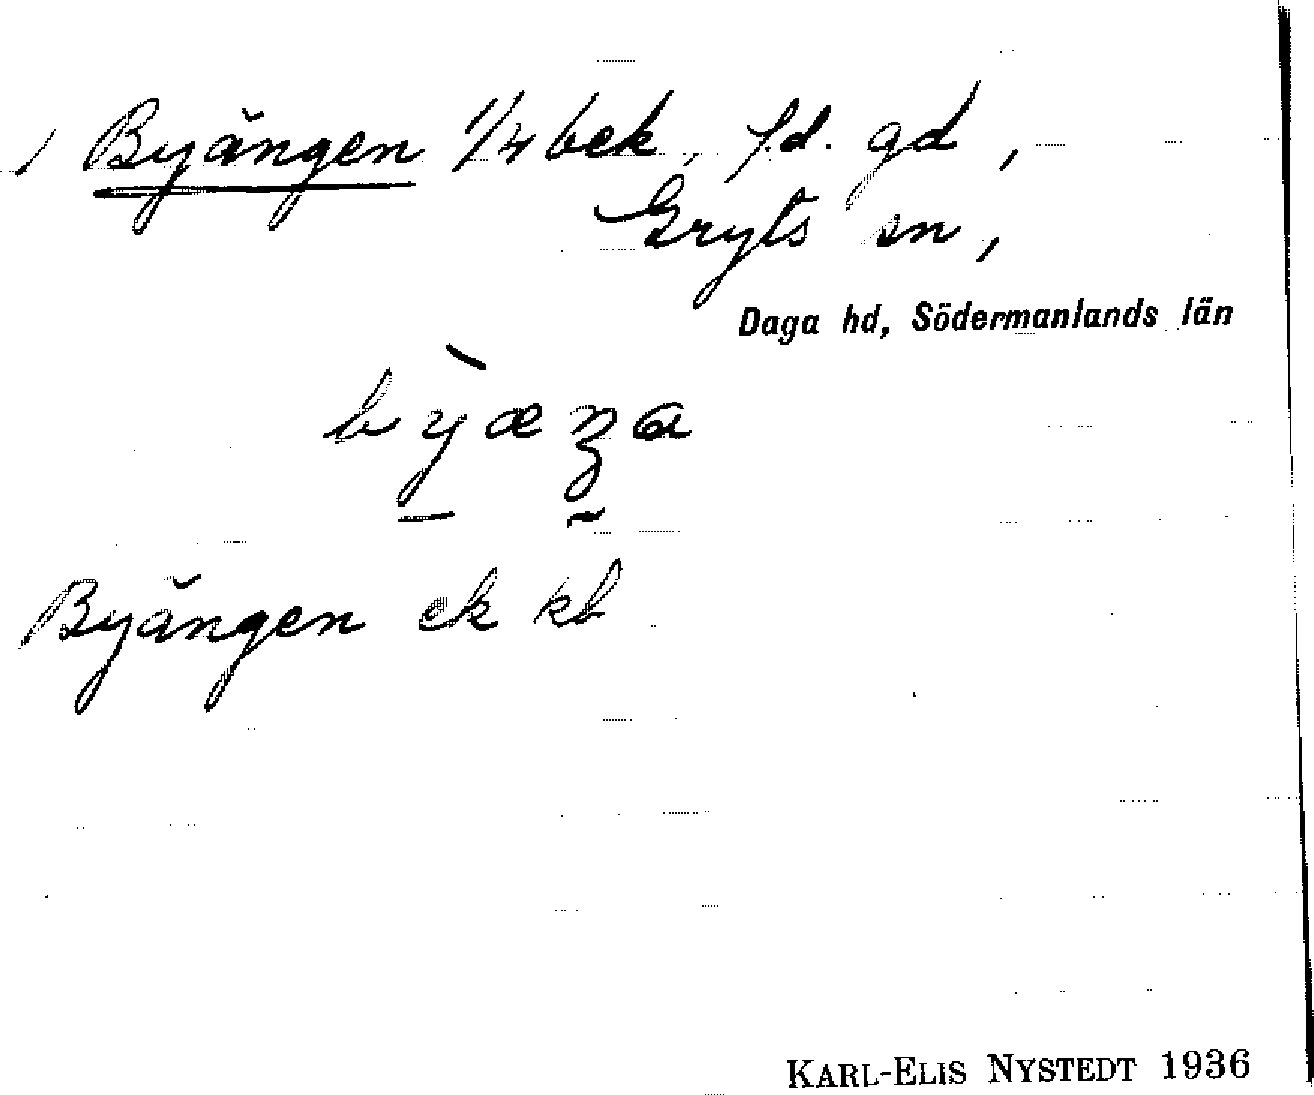 Byängen 1/4 bek, f.d. gd,
Gryts sn,
Daga hd, Södermanlands län
Byängen ek kb
KARL-ELIS NYSTEDT 1936